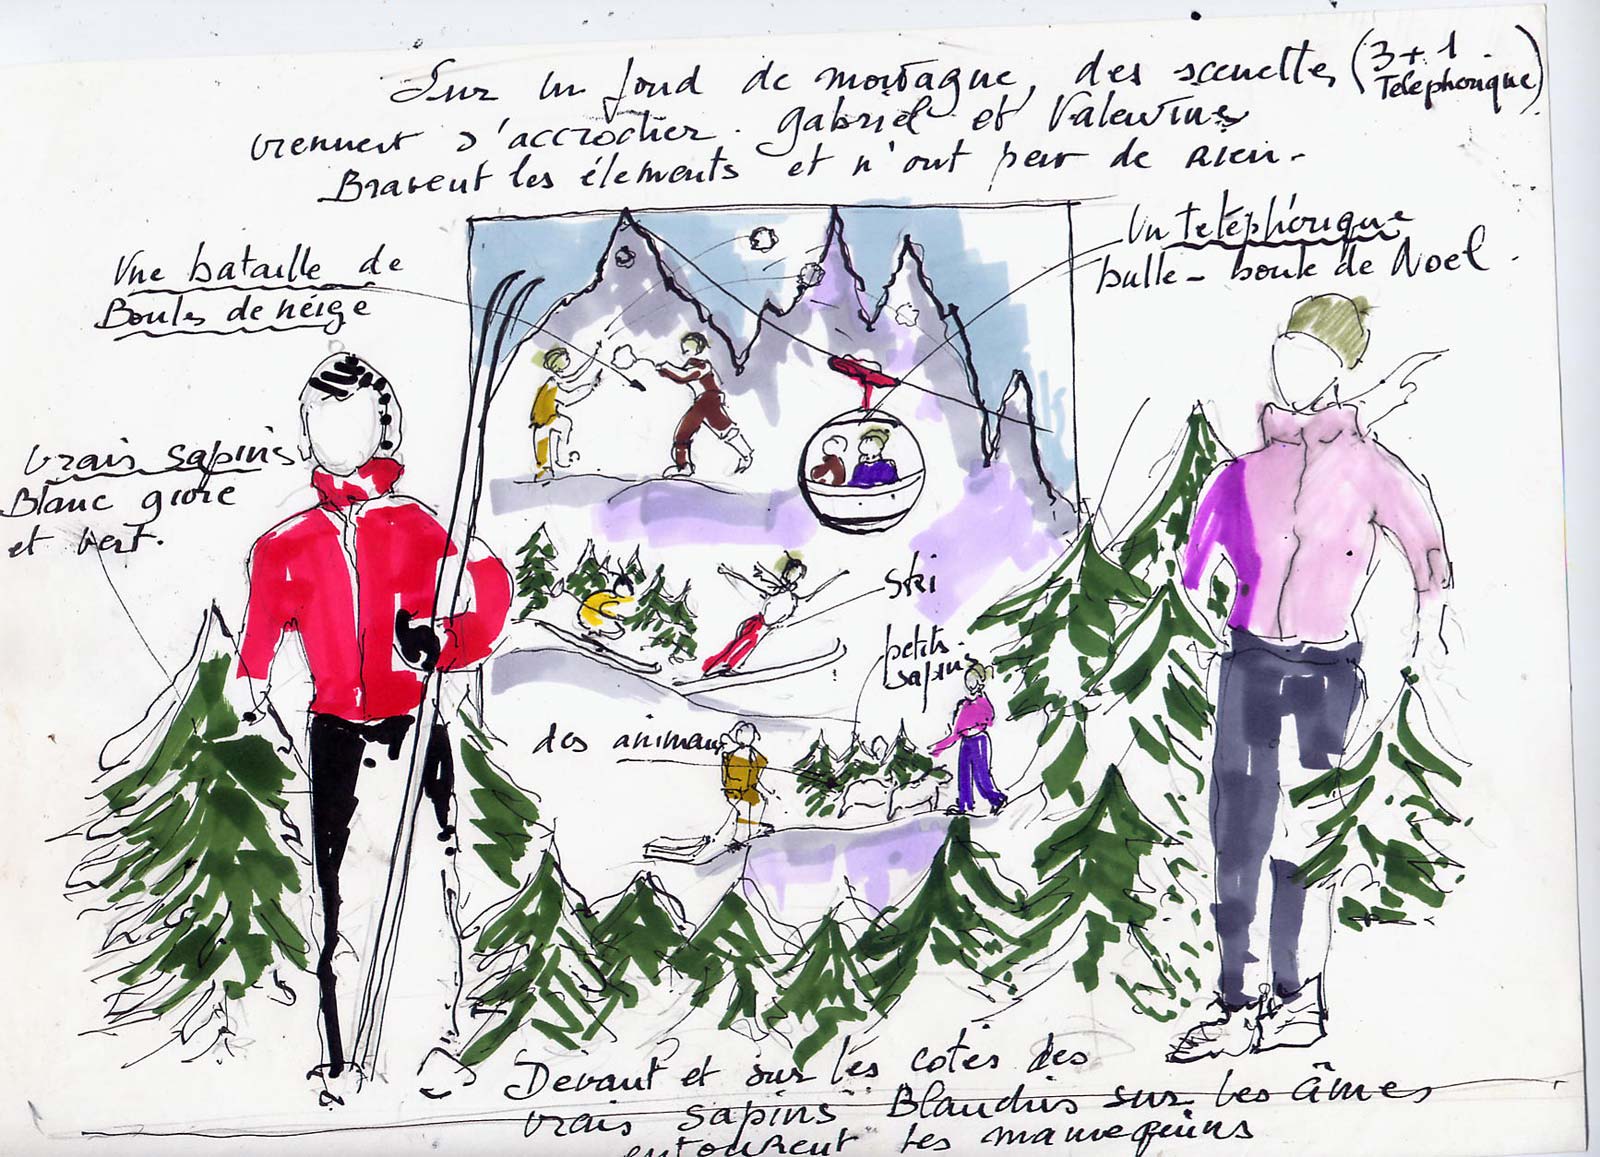 Sur un fond de montagne, des scenettes (3+1
Telephonique)
viennent s'accrocher. Gabriel et Valentins
Bravent les élements et n'ont peur de rien.
Un telephérique
bulle - boule de Noel.
Une bataille de
Boules de neige
vrais sapins
Blanc givre
et vert.
Ski
petits
sapins
des animaux
Devant et sur les cotés des
vrais sapins Blanchis sur les âmes
entourent les mannequins